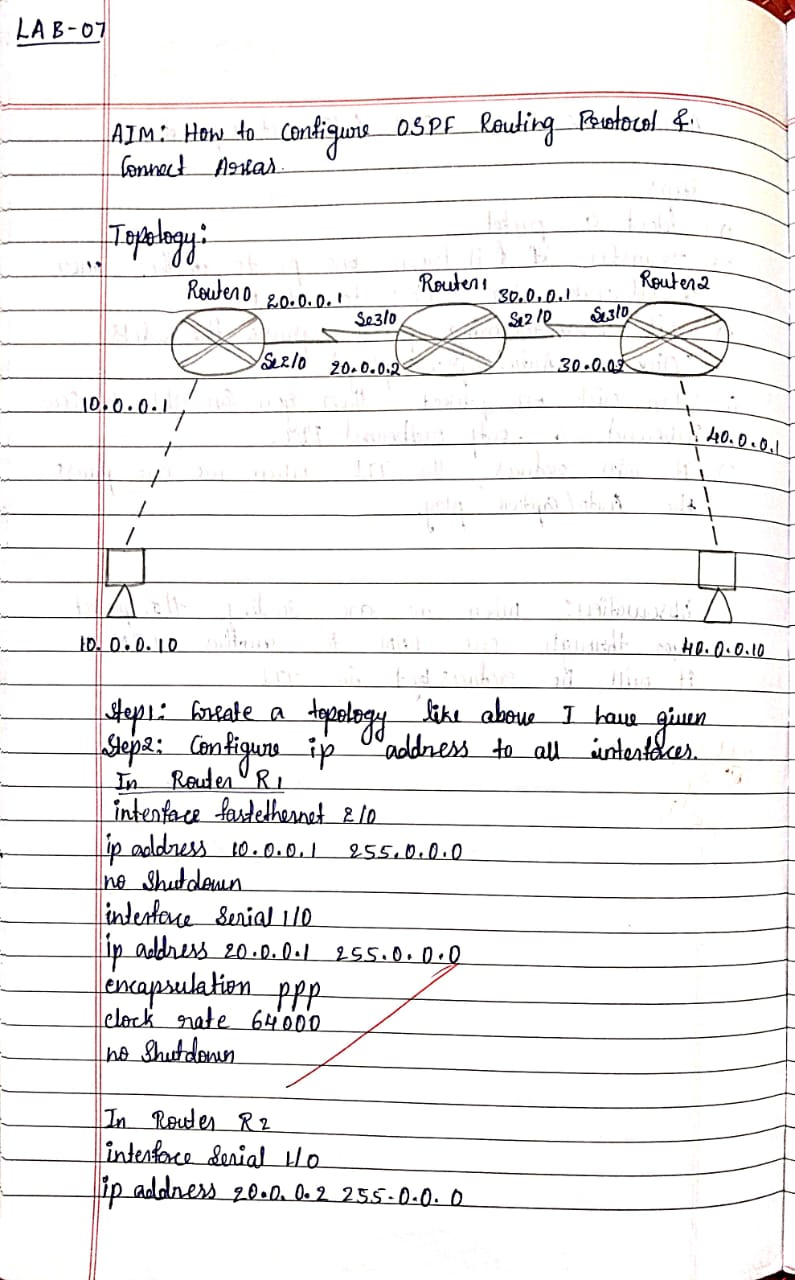 LAB-07
AIM: How to Configure OSPF Routing Protocol &
Connect Areas.
Topology:
Router0 20.0.0.1 Router1 30.0.0.1 Router2
Se3/0 Se2/0 Se3/0
Se2/0 20.0.0.2 30.0.0.2
10.0.0.1
40.0.0.1
10.0.0.10 40.0.0.10
Step1: Create a topology like above I have given
Step2: Configure ip address to all interfaces.
In Router R1
interface fastethernet 2/0
ip address 10.0.0.1 255.0.0.0
no Shutdown
interface Serial 1/0
ip address 20.0.0.1 255.0.0.0
encapsulation ppp
clock rate 64000
no Shutdown
In Router R2
interface Serial 1/0
ip address 20.0.0.2 255.0.0.0